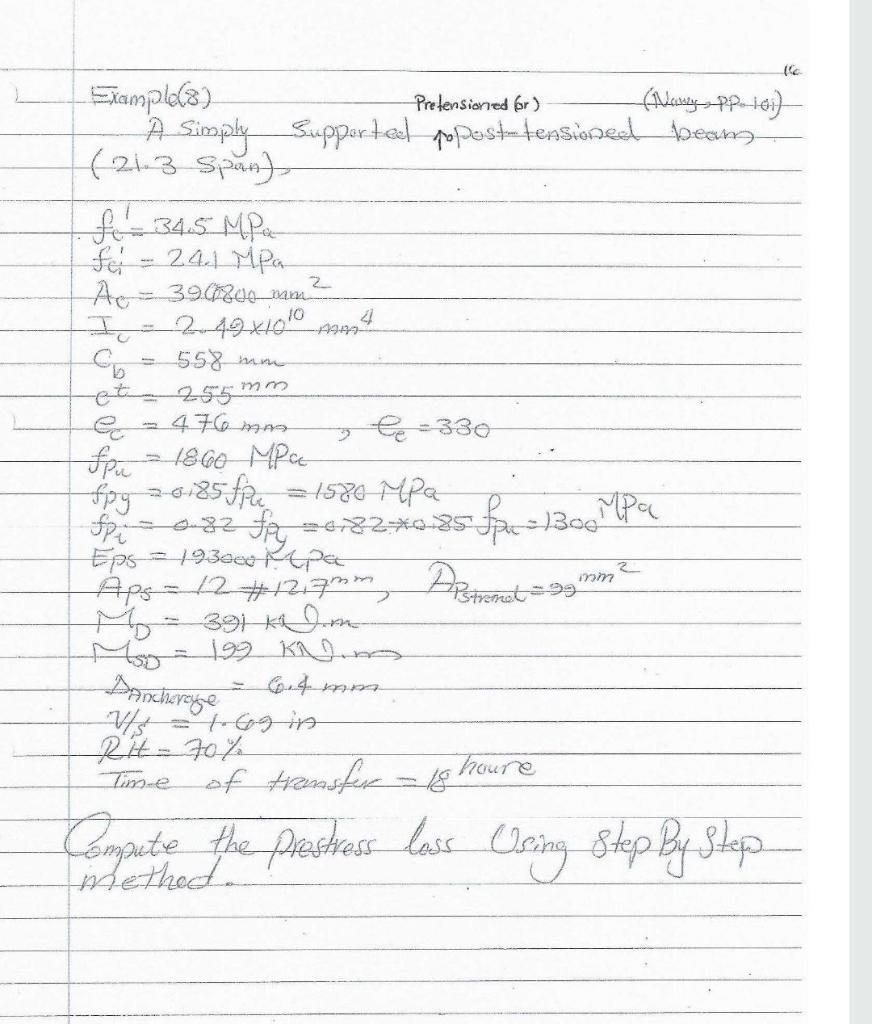 16
Example(8) Pretensioned (or) (Nawy, PP. 101)
A Simply Supported post-tensioned beam
(21.3 Span),
fc' = 34.5 MPa
fci' = 24.1 MPa
Ac = 390800 mm²
Ic = 2.49 x10¹⁰ mm⁴
Cb = 558 mm
ct = 255 mm
ec = 476 mm , ee = 330
fpu = 1860 MPa
fpy = 0.85 fpu = 1580 MPa
fpi = 0.82 fpy = 0.82*0.85 fpu = 1300 MPa
Eps = 193000 MPa
Aps = 12 # 12.7mm, APstrand = 99 mm²
MD = 391 kN.m
MSD = 199 KN.m
ΔAnchorage = 6.4 mm
V/s = 1.69 in
RH = 70 %
Time of transfer = 18 houre
Compute the prestress loss Using Step By Step
method.